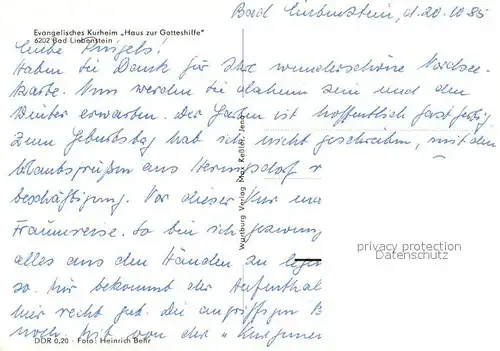 Bad Liebenstein, d. 20.10.85
Evangelisches Kurheim „Haus zur Gotteshilfe"
6202 Bad Liebenstein
Liebe
Haben Sie Dank für Ihre wunderschöne Nordsee-
karte. Nun werden Sie daheim sein und den
Winter erwarten. Der Garten ist hoffentlich fast fertig.
Zum Geburtstag hab ich nicht geschrieben, mit den
Urlaubsgrüßen aus Hermsdorf
beschäftigung. Vor dieser Kur
Traumreise. So bin ich gezwung
alles aus den Händen zu legen
so. Mir bekommt der Aufenthal
hier recht gut. Die
noch. Mit von der „
Wartburg Verlag Max Keßler, Jena
privacy protection
Datenschutz
DDR 0,20 · Foto: Heinrich Behr